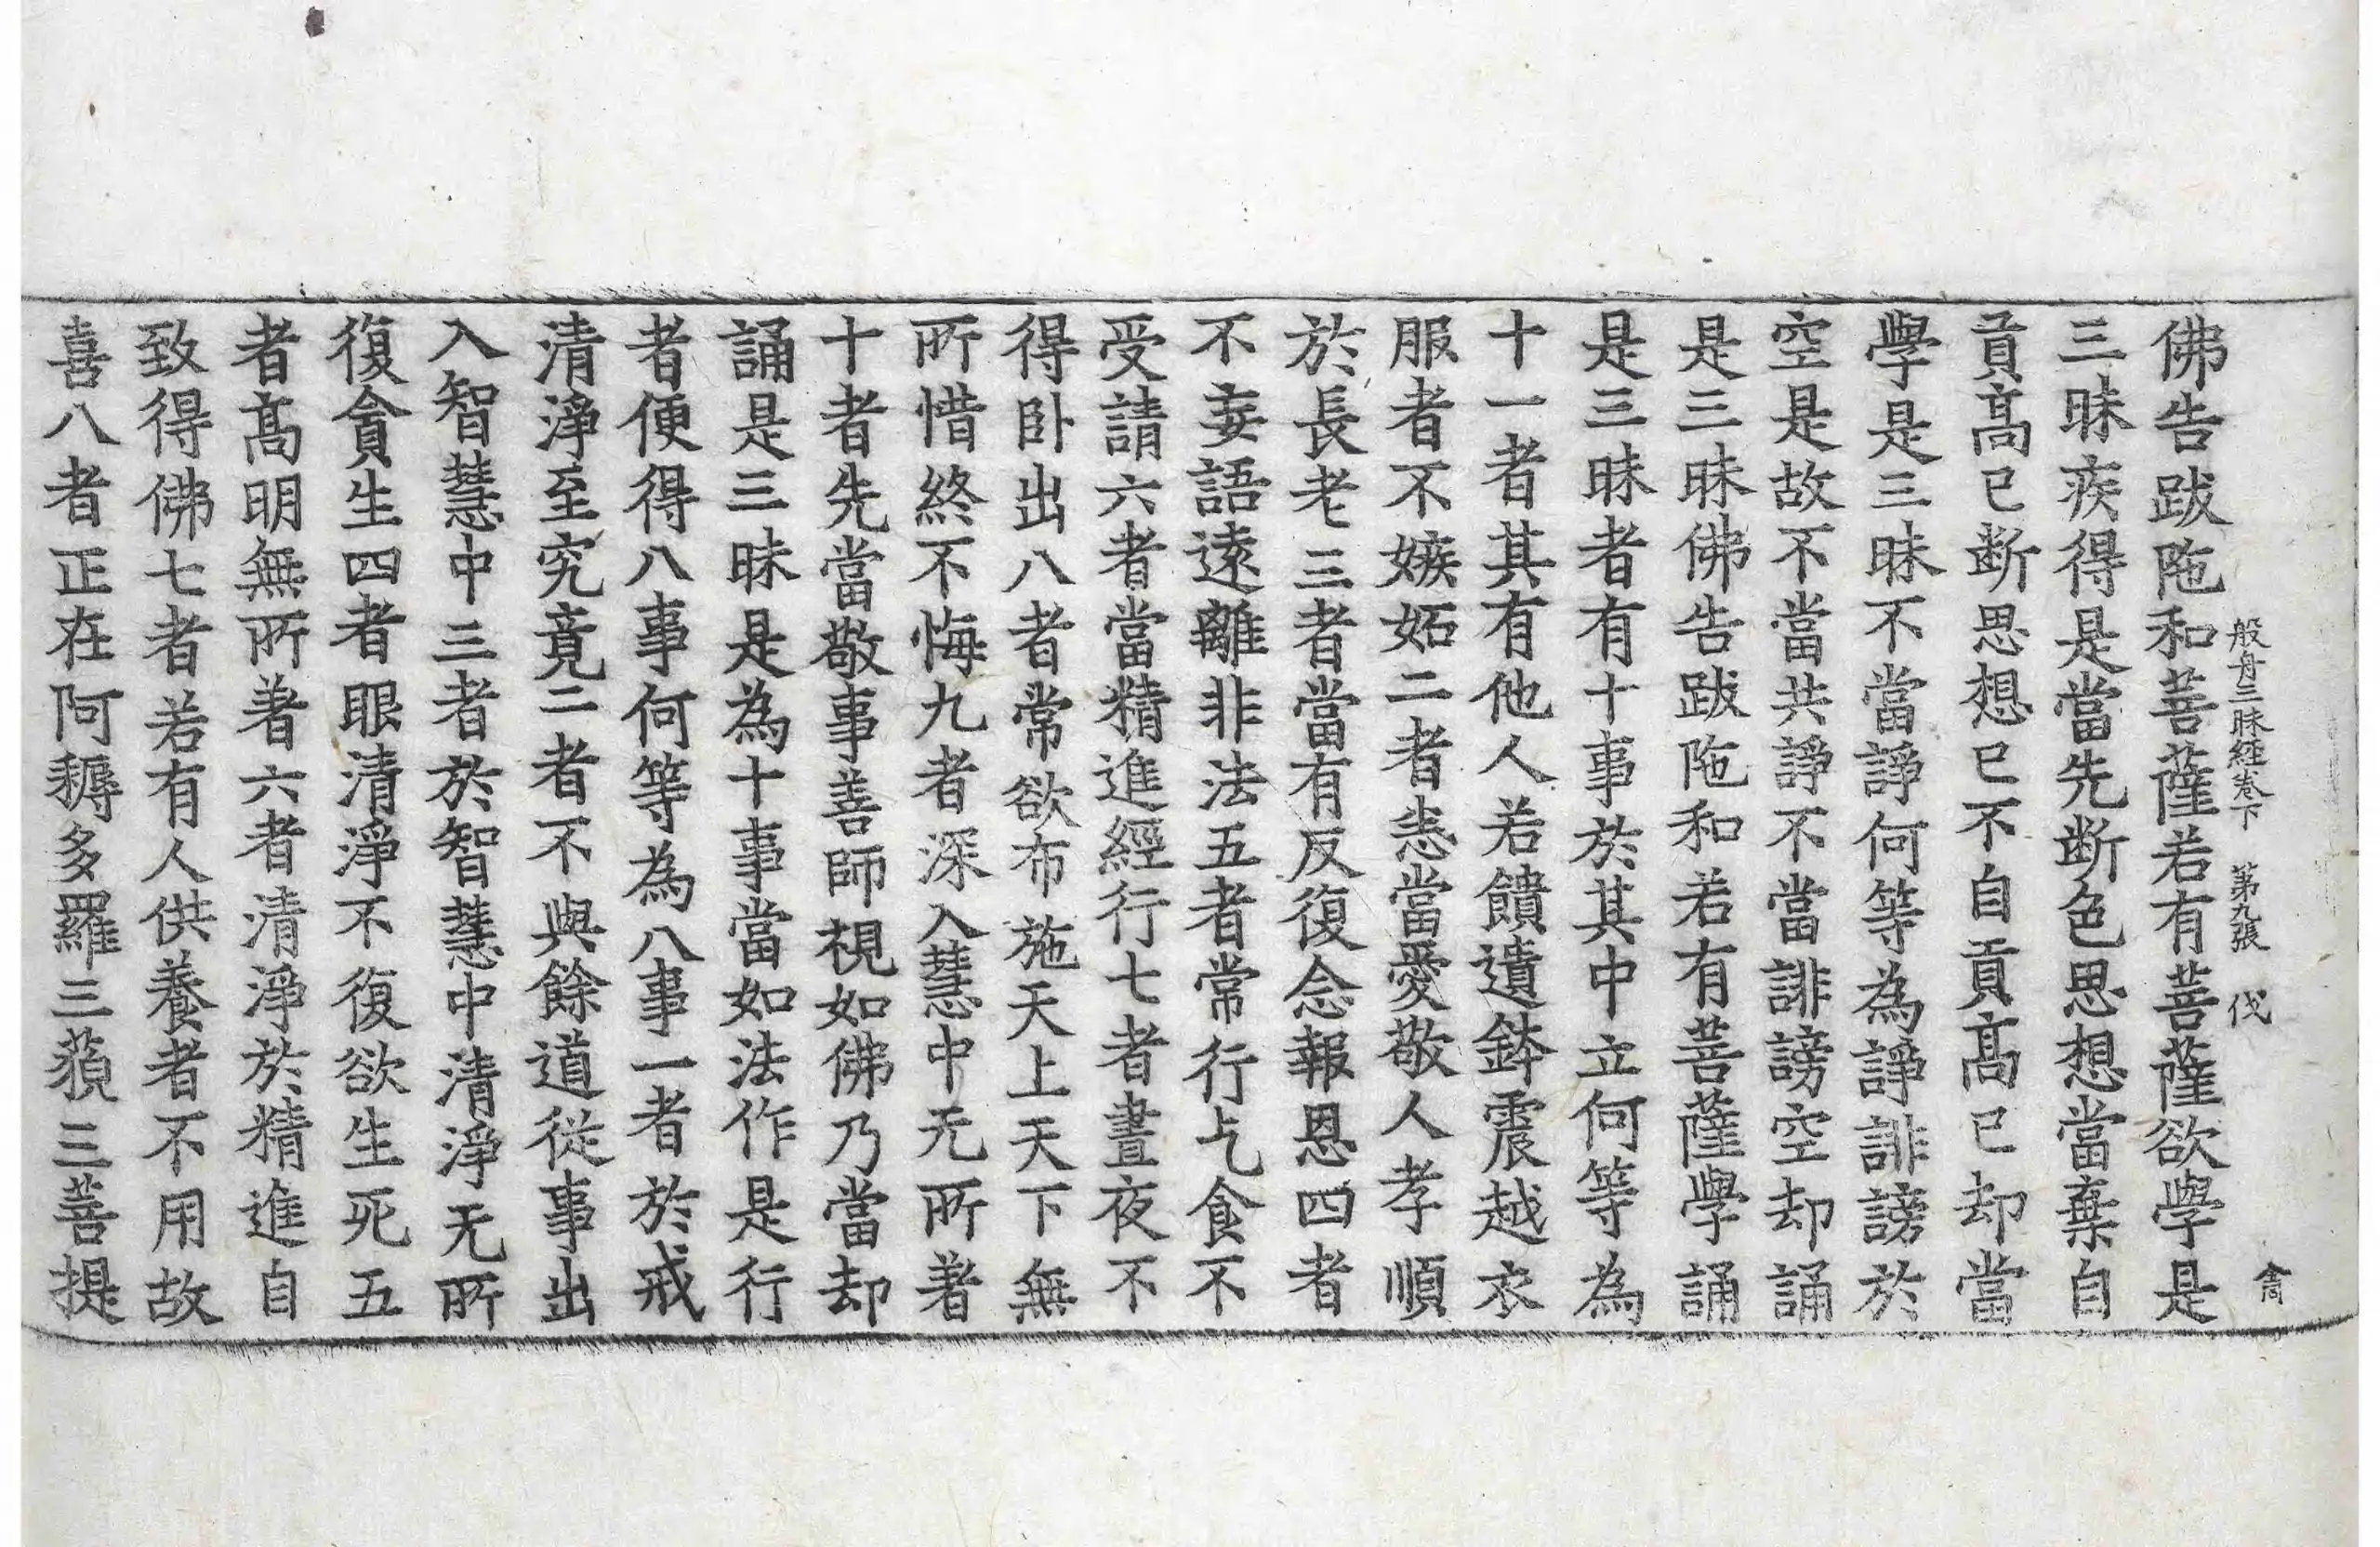 般舟三昧經卷下　第九張　伐
佛告跋陁和菩薩若有菩薩欲學是
三昧疾得是當先断色思想當棄自
貢髙已断思想已不自貢髙已却當
學是三昧不當諍何等為諍誹謗於
空是故不當共諍不當誹謗空却誦
是三昧佛告跋陁和若有菩薩學誦
是三昧者有十事於其中立何等為
十一者其有他人若饋遺鉢震越衣
服者不嫉妬二者悉當愛敬人孝順
於長老三者當有反復念報恩四者
不妄語逺離非法五者常行乞食不
受請六者當精進經行七者晝夜不
得卧出八者常欲布施天上天下無
所惜終不悔九者深入慧中无所著
十者先當敬事善師視如佛乃當却
誦是三昧是為十事當如法作是行
者便得八事何等為八事一者於戒
清淨至究竟二者不與餘道從事出
入智慧中三者於智慧中清淨无所
復貪生四者眼清淨不復欲生死五
者髙明無所著六者清淨於精進自
致得佛七者若有人供養者不用故
喜八者正在阿耨多羅三藐三菩提